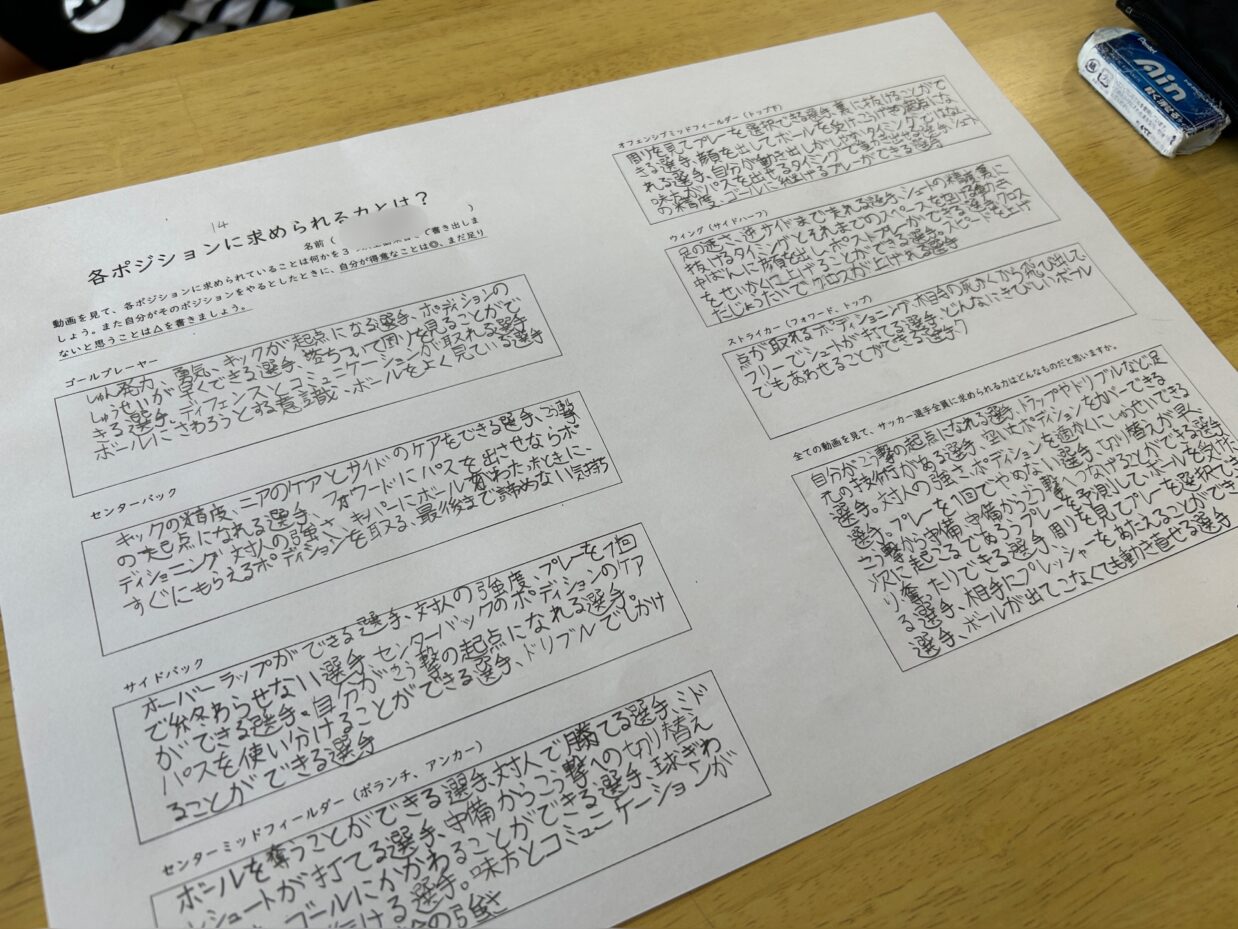 14
各ポジションに求められる力とは?
名前 (
)
動画を見て、各ポジションに求められていることは何かを3
て書き出しま
しょう。また自分がそのポジションをやるとしたときに、自分が得意なことは◎、まだ足り
ないと思うことは△を書きましょう。
ゴールプレーヤー
しゅん発力、勇気、キックが起点になる選手、ポディションの
しゅうせいが早くできる選手、落ちついて周りを見ることがで
きる選手、ディフェンスとコミュニケーションが取れる選手
ボールにさわろうとする意識、ボールをよく見ている選手
センターバック
キックの精度、ニアのケアとサイドのケアをできる選手、こう撃
の起点になれる選手、フォワードにパスを出させないポ
ディショニング 対人の強さ、キーパーにボール 渡った時に
すぐにもらえるポディションを取る、最後まで諦めない気持ち
サイドバック
オーバーラップができる選手、対人の強度、プレーを1回
で終わらせない選手 センターバックのポディションのケア
ができる選手。自分がこう撃の起点になれる選手。
パスを使い分けることができる選手、ドリブルでしかけ
ることができる選手
センターミッドフィールダー (ボランチ、アンカー)
ボールを奪うことができる選手、対人で勝てる選手、ミド
ルシュートが打てる選手、守備からこう撃への切り替え
ゴールにかかわることができる選手、球ぎわ
ける選手。味方とコミュニケーションが
の強さ
オフェンシブミッドフィールダー (トップ下)
周りを見てプレーを選択できる選手、裏に抜けることがで
きる選手、顔を出してボールを受け、こう撃の起点にな
れる選手、自分が動き出しがしやすいタイミングではなく
味方がパスを出せるタイミングで動き出せる選手、シュート
の精度、ゴールに繋げるプレーができる選手
ウィング (サイドハーフ)
足の速さ、逆サイドまで走れる選手、シュートの精度、裏に
抜けるタイミングとそれまでのスペースを空ける動き、
中ばんに顔を出し、ポストプレーができる選手、クロス
をせいかくに上げることができる選手。スピードを上げ
たじょうたいでクロスが上げれる選手
ストライカー (フォワード、トップ)
点が取れるポディショニング、相手の死かくから飛び出して
フリーでシュートが打てる選手、どんなにきびしいボール
でもあわせることができる選手
全ての動画を見て、サッカー選手全員に求められる力はどんなものだと思いますか。
自分がこう撃の起点になれる選手、トラップやドリブルなど足
元の技術がある選手、空いたポディションをカバーできる
選手。対人の強さ、ポディションを細かくしゅうせいできる
選手。プレーを1回でやめない選手、切り替えが早く
こう撃から守備、守備からこう撃へつなげることができる選手
次に起こるであろうプレーを予測してボールを受けた
り奪ったりできる選手 周りを見てプレーを選択でき
る選手、相手にプレッシャーをあたえることができ
選手、ボールが出てこなくても動き直せる選手
Pentel
Ain